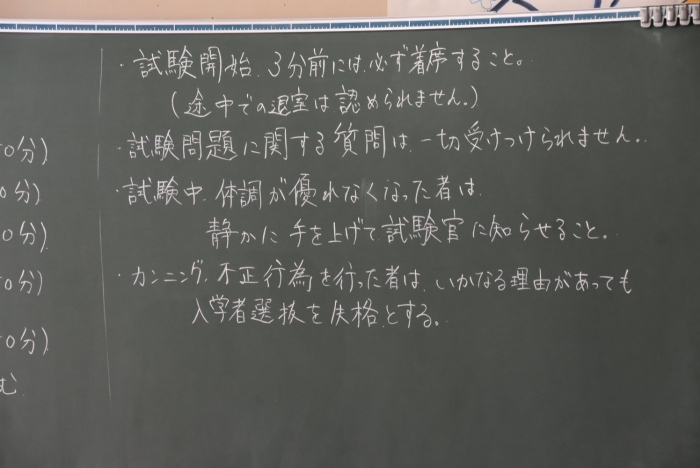 ・試験開始、3分前には、必ず着席すること。
(途中での退室は認められません。)
・試験問題に関する質問は、一切受けつけられません。
・試験中、体調が優れなくなった者は、
静かに手を上げて試験官に知らせること。
・カンニング、不正行為を行った者は、いかなる理由があっても
入学者選抜を失格とする。
0分)
0分)
0分)
0分)
0分)
む